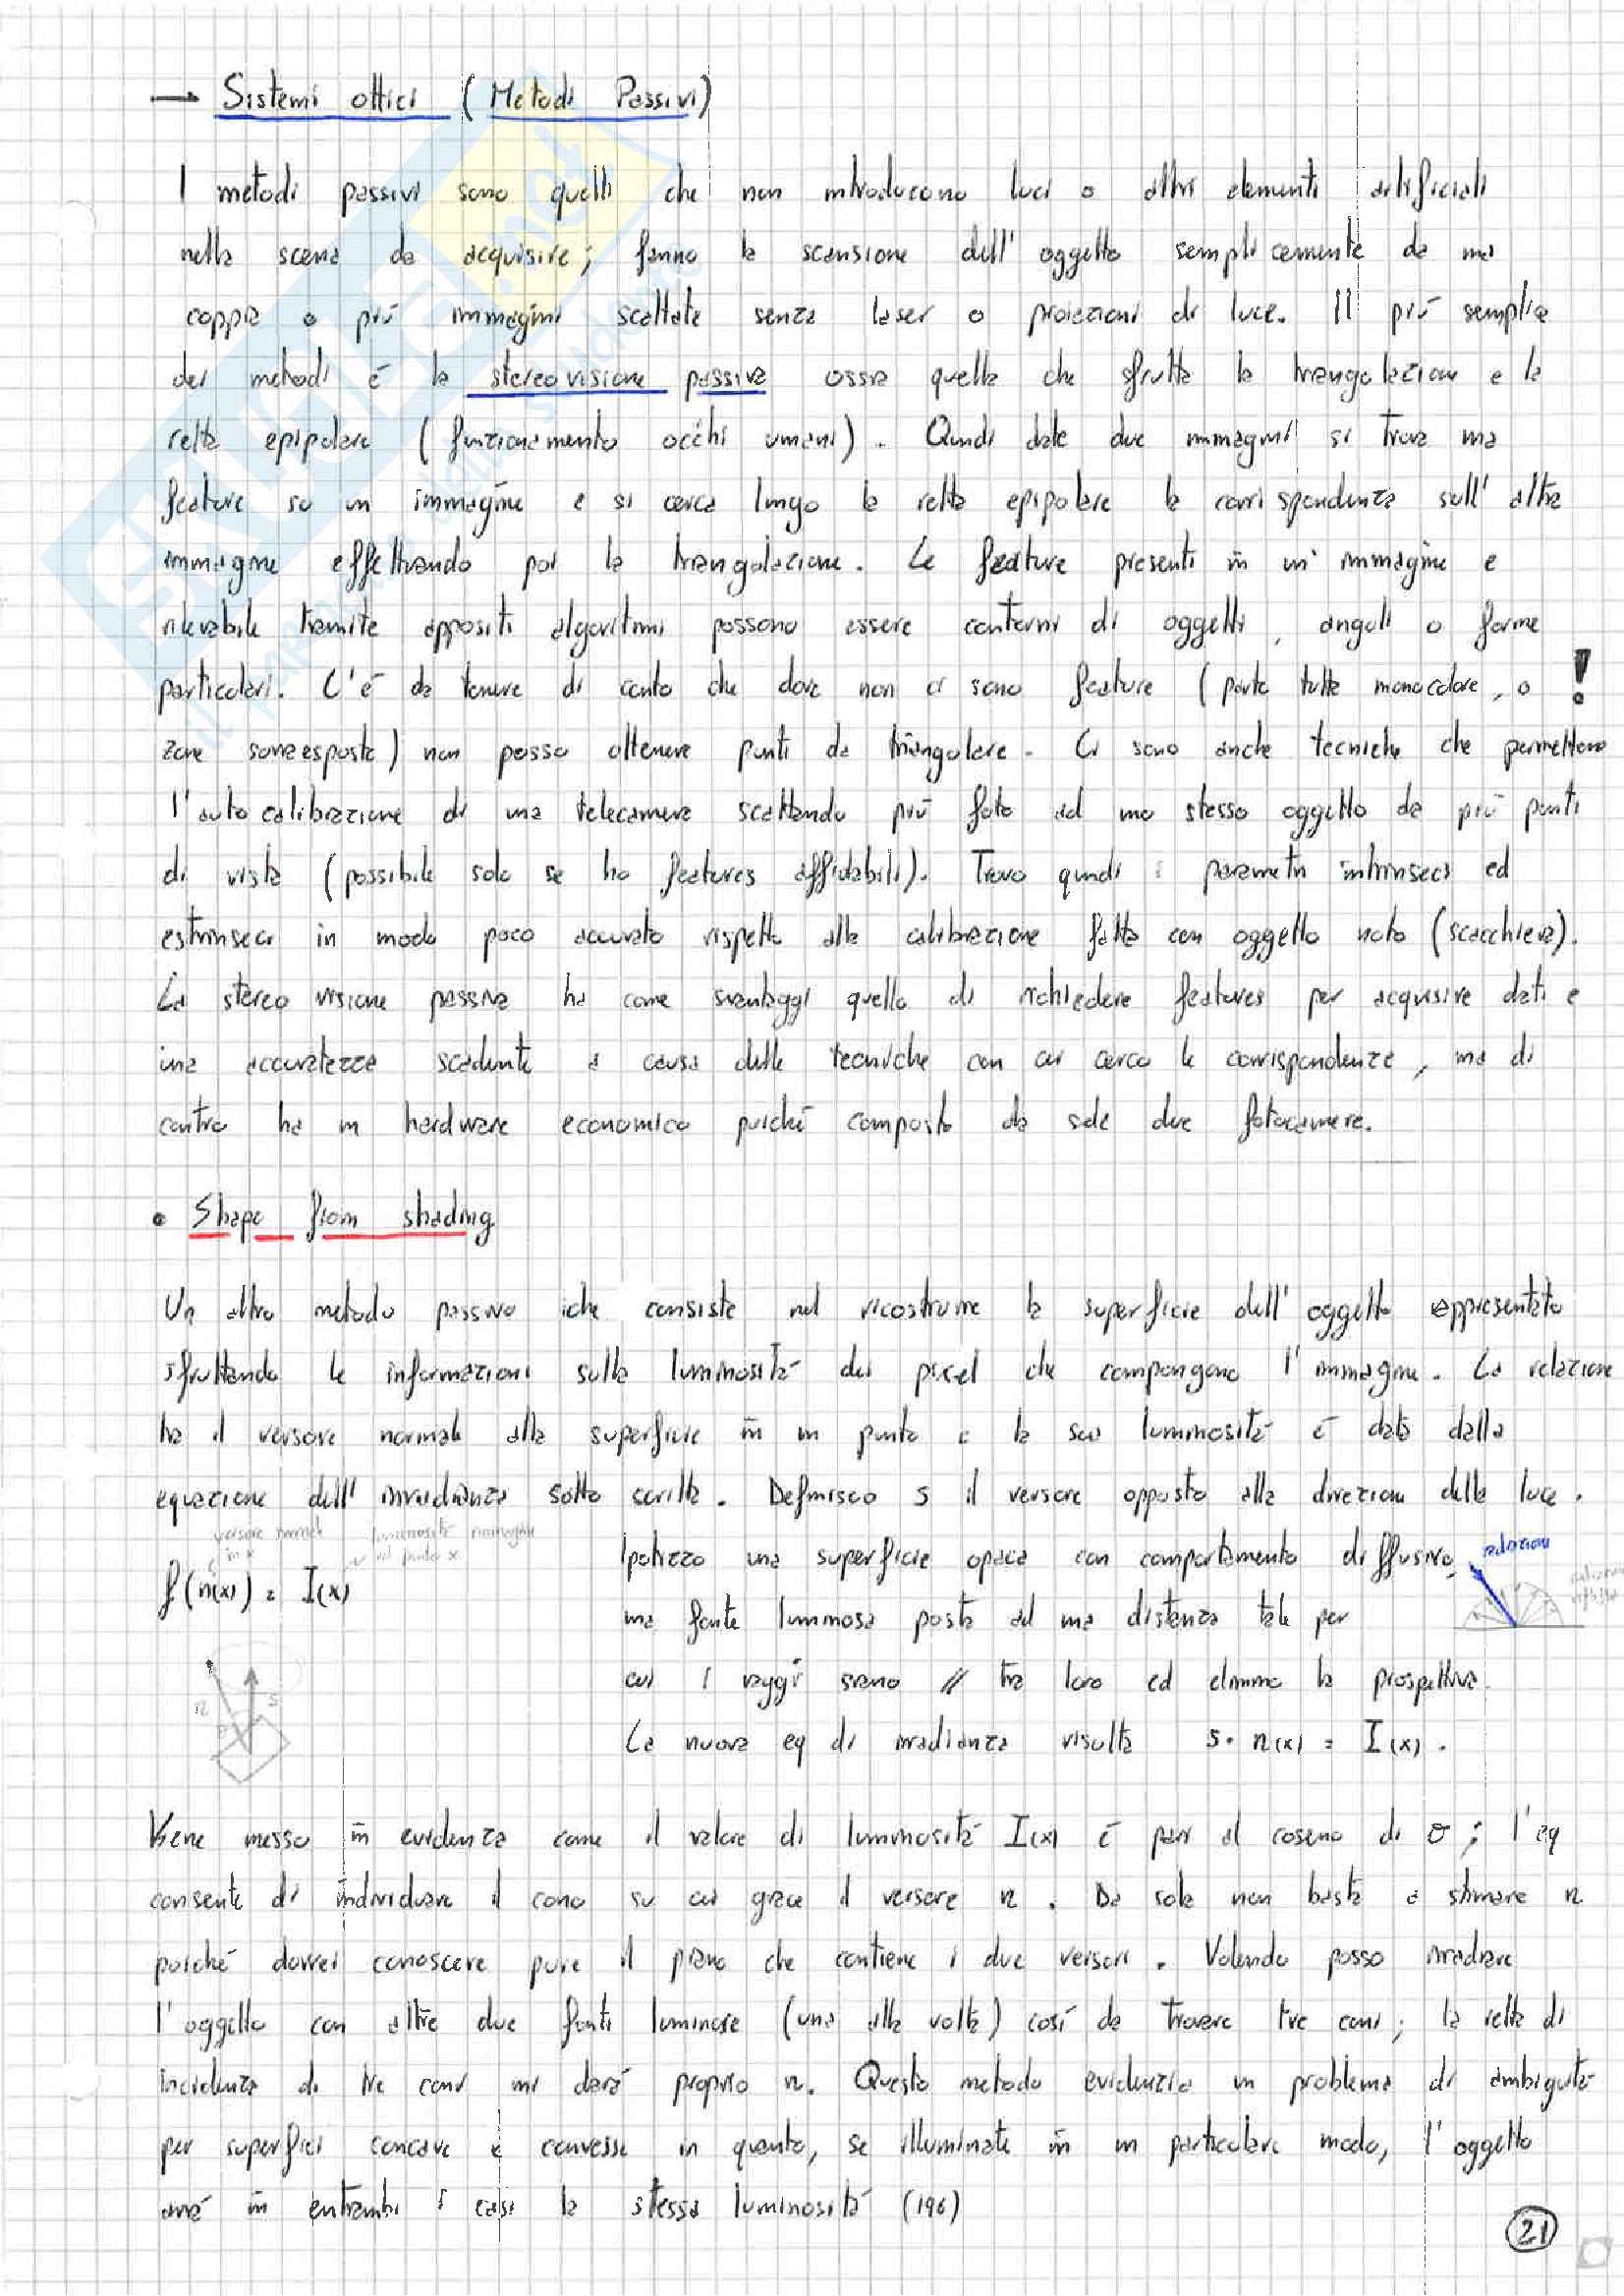 → Sistemi ottici (Metodi Passivi)
I metodi passivi sono quelli che non introducono luci o altri elementi artificiali
nella scena da acquisire; fanno la scansione dell'oggetto semplicemente da una
coppia o più immagini scattate senza laser o proiezioni di luce. Il più semplice
dei metodi è la stereovisione passiva ossia quella che sfrutta la triangolazione e la
retta epipolare (funzionamento occhi umani). Quindi date due immagini si trova una
feature su un immagine e si cerca lungo la retta epipolare la corrispondenza sull'altra
immagine effettuando poi la triangolazione. Le feature presenti in un'immagine e
rilevabile tramite appositi algoritmi possono essere contorni di oggetti, angoli o forme
particolari. C'è da tenere di conto che dove non ci sono feature (parte tutta monocolore, o !
zone sovraesposte) non posso ottenere punti da triangolare. Ci sono anche tecniche che permettono
l'auto calibrazione di una telecamera scattando più foto ad uno stesso oggetto da più punti
di vista (possibile solo se ho features affidabili). Trovo quindi i parametri intrinseci ed
estrinseci in modo poco accurato rispetto alla calibrazione fatta con oggetto noto (scacchiera).
La stereo visione passiva ha come svantaggi quello di richiedere features per acquisire dati e
una accuratezza scadente a causa delle tecniche con cui cerco le corrispondenze, ma di
contro ha un hardware economico poiché composto da sole due fotocamere.
• Shape from shading
Un altro metodo passivo che consiste nel ricostruire la superficie dell'oggetto rappresentato
sfruttando le informazioni sulla luminosità dei pixel che compongono l'immagine. La relazione
tra il versore normale alla superficie in un punto e la sua luminosità è data dalla
equazione dell'irradianza sotto scritta. Definisco s il versore opposto alla direzione della luce.
versore normale in x
luminosità immagine nel punto x
f(n(x)) = I(x)
Ipotizzo una superficie opaca con comportamento diffusivo,
radiazioni
una fonte luminosa posta ad una distanza tale per
cui i raggi siano // tra loro ed elimino la prospettiva.
n s
La nuova eq di irradianza risulta s · n(x) = I(x).
Viene messo in evidenza come il valore di luminosità I(x) è pari al coseno di σ; l'eq
consente di individuare il cono su cui giace il versore n. Da sola non basta a stimare n
poiché dovrei conoscere pure il piano che contiene i due versori. Volendo posso irradiare
l'oggetto con altre due fonti luminose (una alla volta) così da trovare tre coni; la retta di
incidenza di tre coni mi darà proprio n. Questo metodo evidenzia un problema di ambiguità
per superfici concave e convesse in quanto, se illuminate in un particolare modo, l'oggetto
avrà in entrambi i casi la stessa luminosità (196)
21